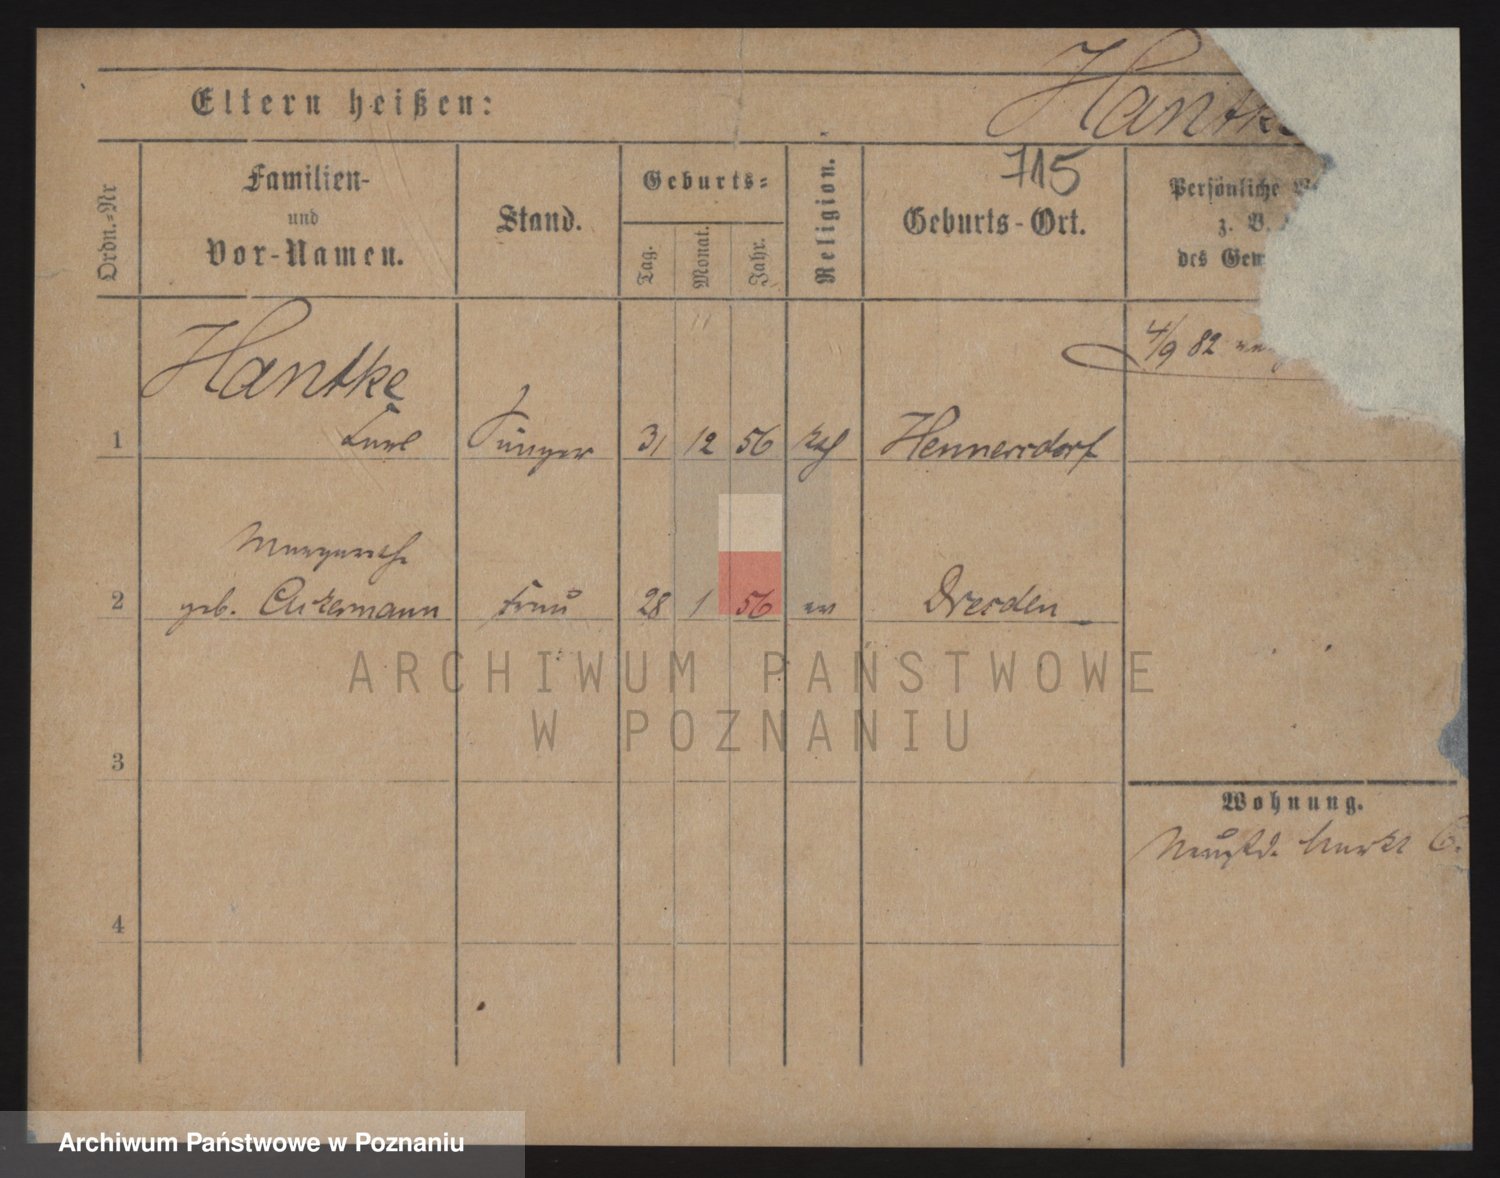 Eltern heißen:
Hantke
715
Ordn.-Nr
Familien-
und
Vor-Namen.
Stand.
Geburts-
Tag.
Monat.
Jahr.
Religion.
Geburts-Ort.
Persönliche
z. B.
des Gew
4/9 82
Hantke
1 Carl Sänger 31 12 56 kath Hennersdorf
Margarethe
2 geb. Ackermann Frau 28 1 56 ev Dresden
ARCHIWUM PAŃSTWOWE
W POZNANIU
3
Wohnung.
Neustd. Markt 6.
4
Archiwum Państwowe w Poznaniu